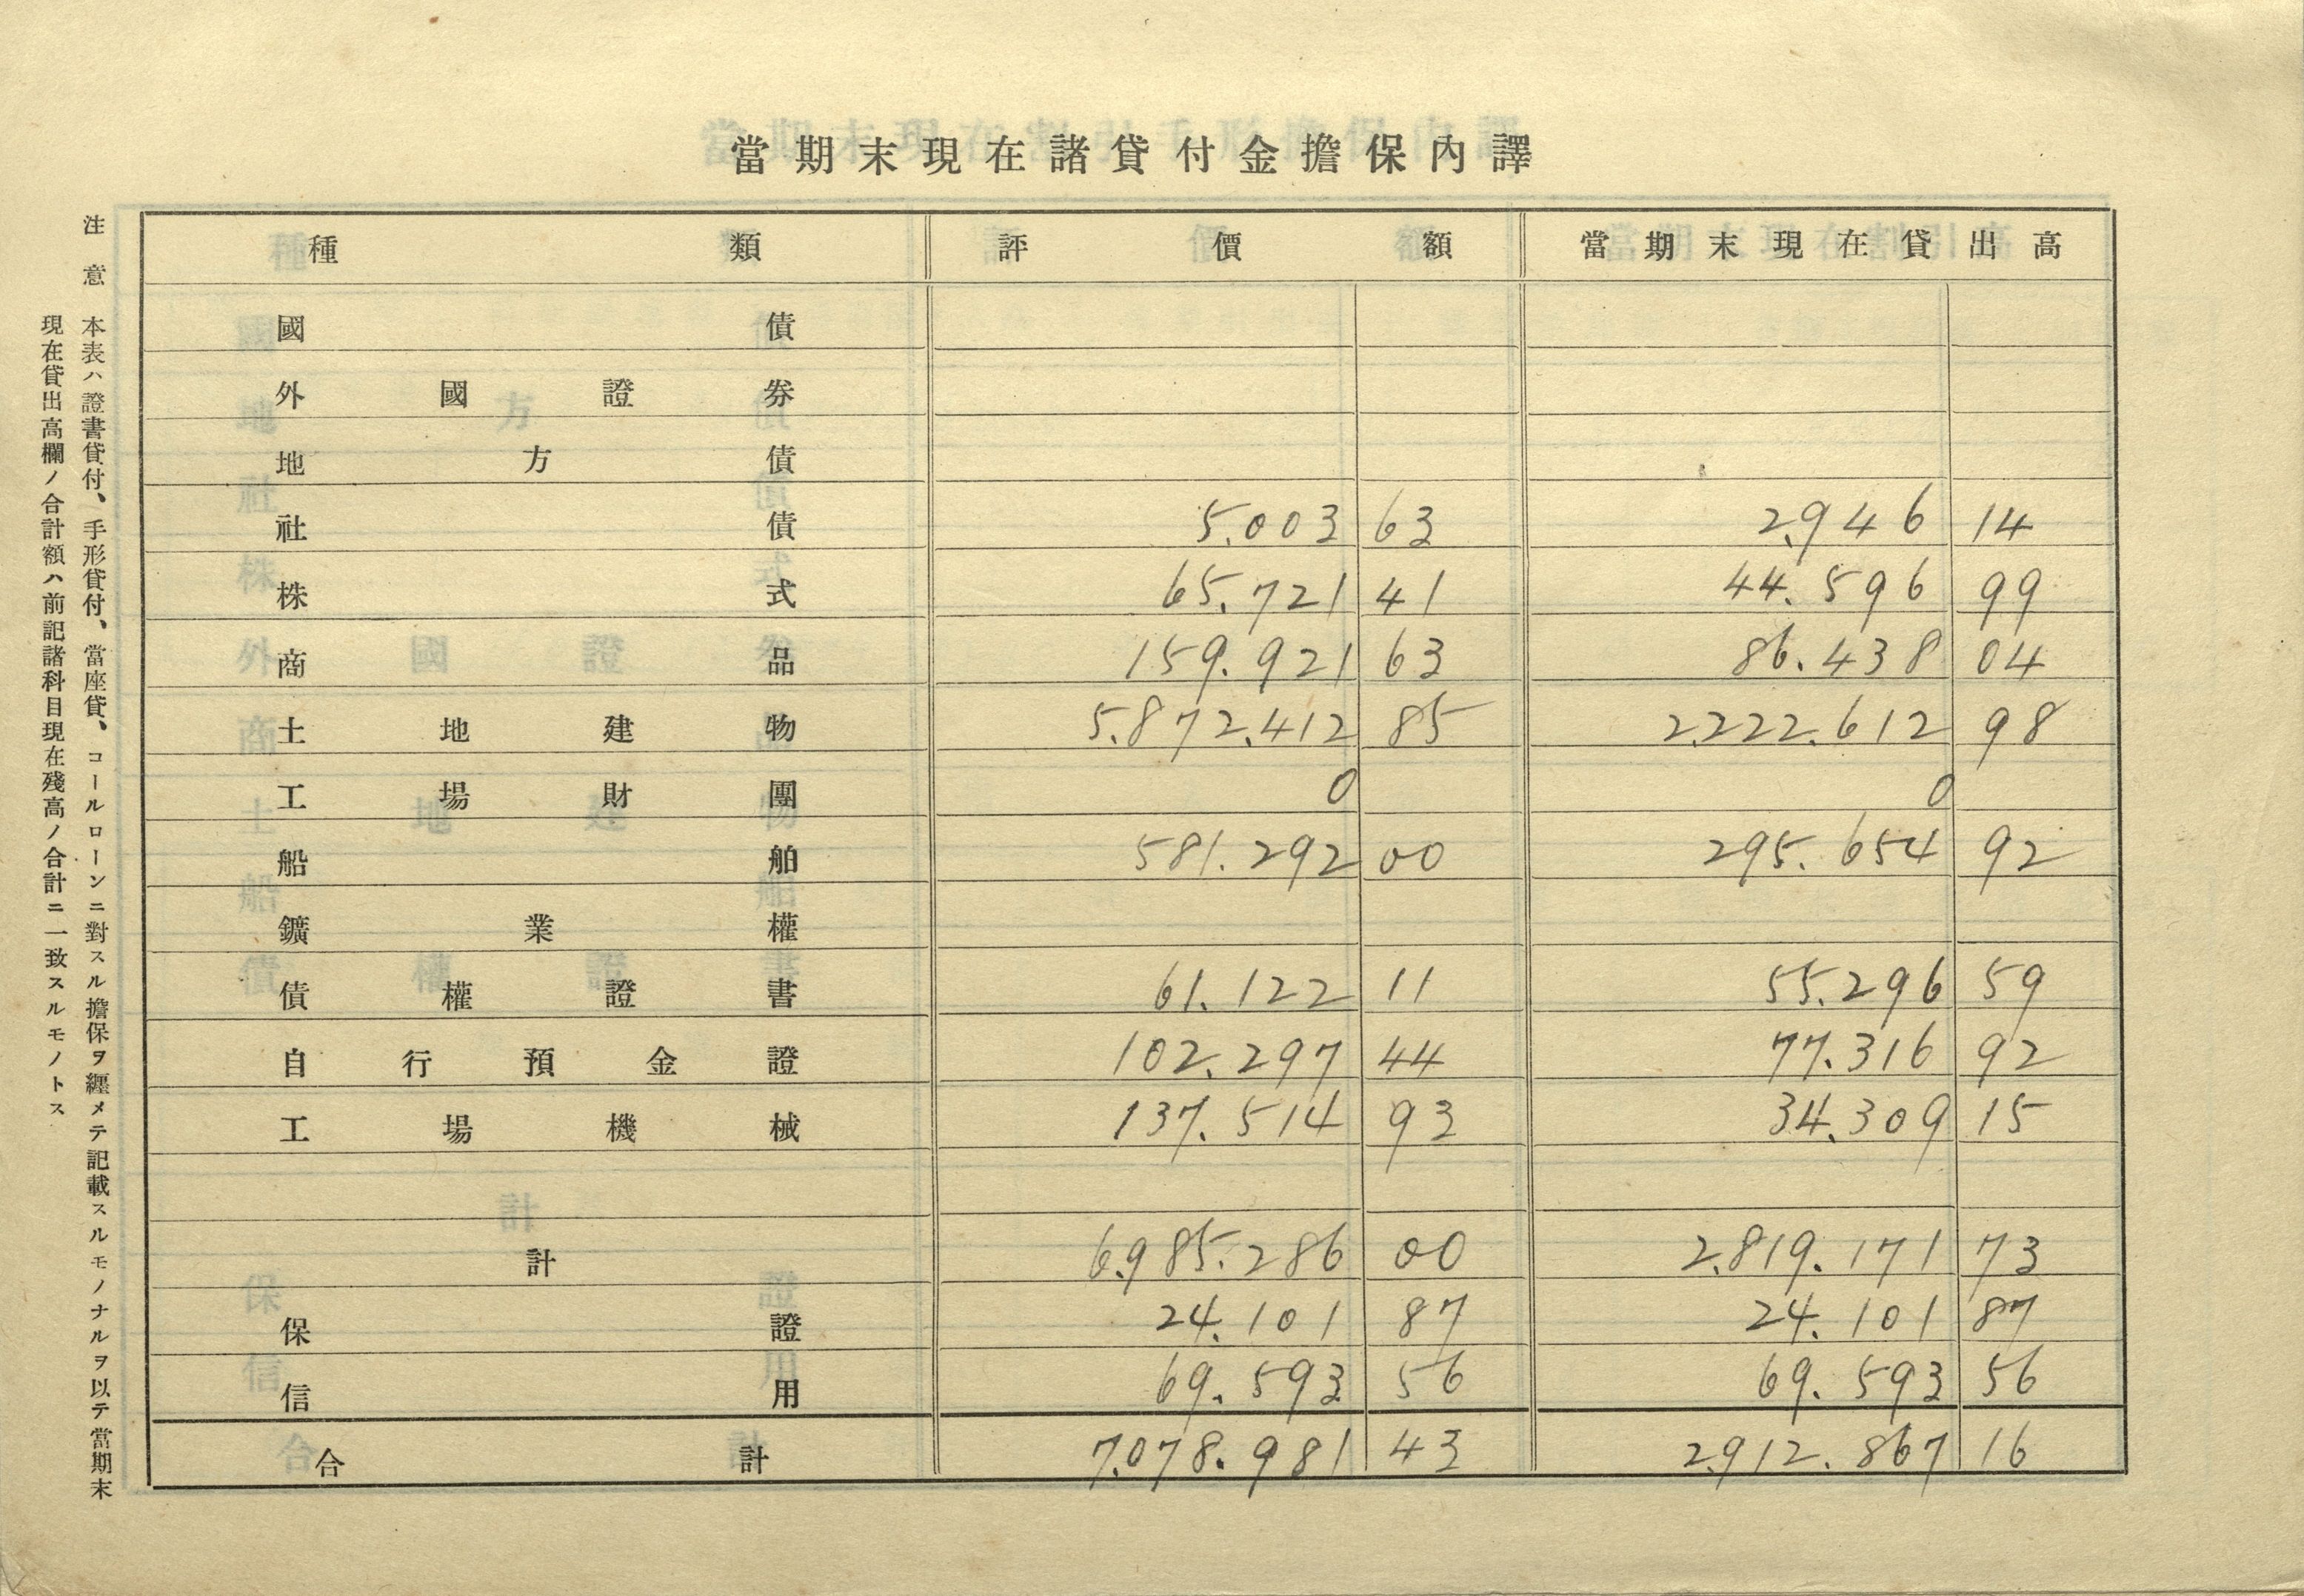 當期末現在諸貸付金擔保內譯
種類 評價額 當期末現在貸出高
國債
外國證券
地方債
社債 5.003 63 2.946 14
株式 65.721 41 44.596 99
商品 159.921 63 86.438 04
土地建物 5.872.412 85 2.222.612 98
工場財團 0 0
船舶 581.292 00 295.654 92
鑛業權
債權證書 61.122 11 55.296 59
自行預金證 102.297 44 77.316 92
工場機械 137.514 93 34.309 15
計 6.985.286 00 2.819.171 73
保證 24.101 87 24.101 87
信用 69.593 56 69.593 56
合計 7.078.981 43 2.912.867 16
注意 本表ハ證書貸付、手形貸付、當座貸、コールローンニ對スル擔保ヲ纒メテ記載スルモノナルヲ以テ當期末
現在貸出高欄ノ合計額ハ前記諸科目現在殘高ノ合計ニ一致スルモノトス